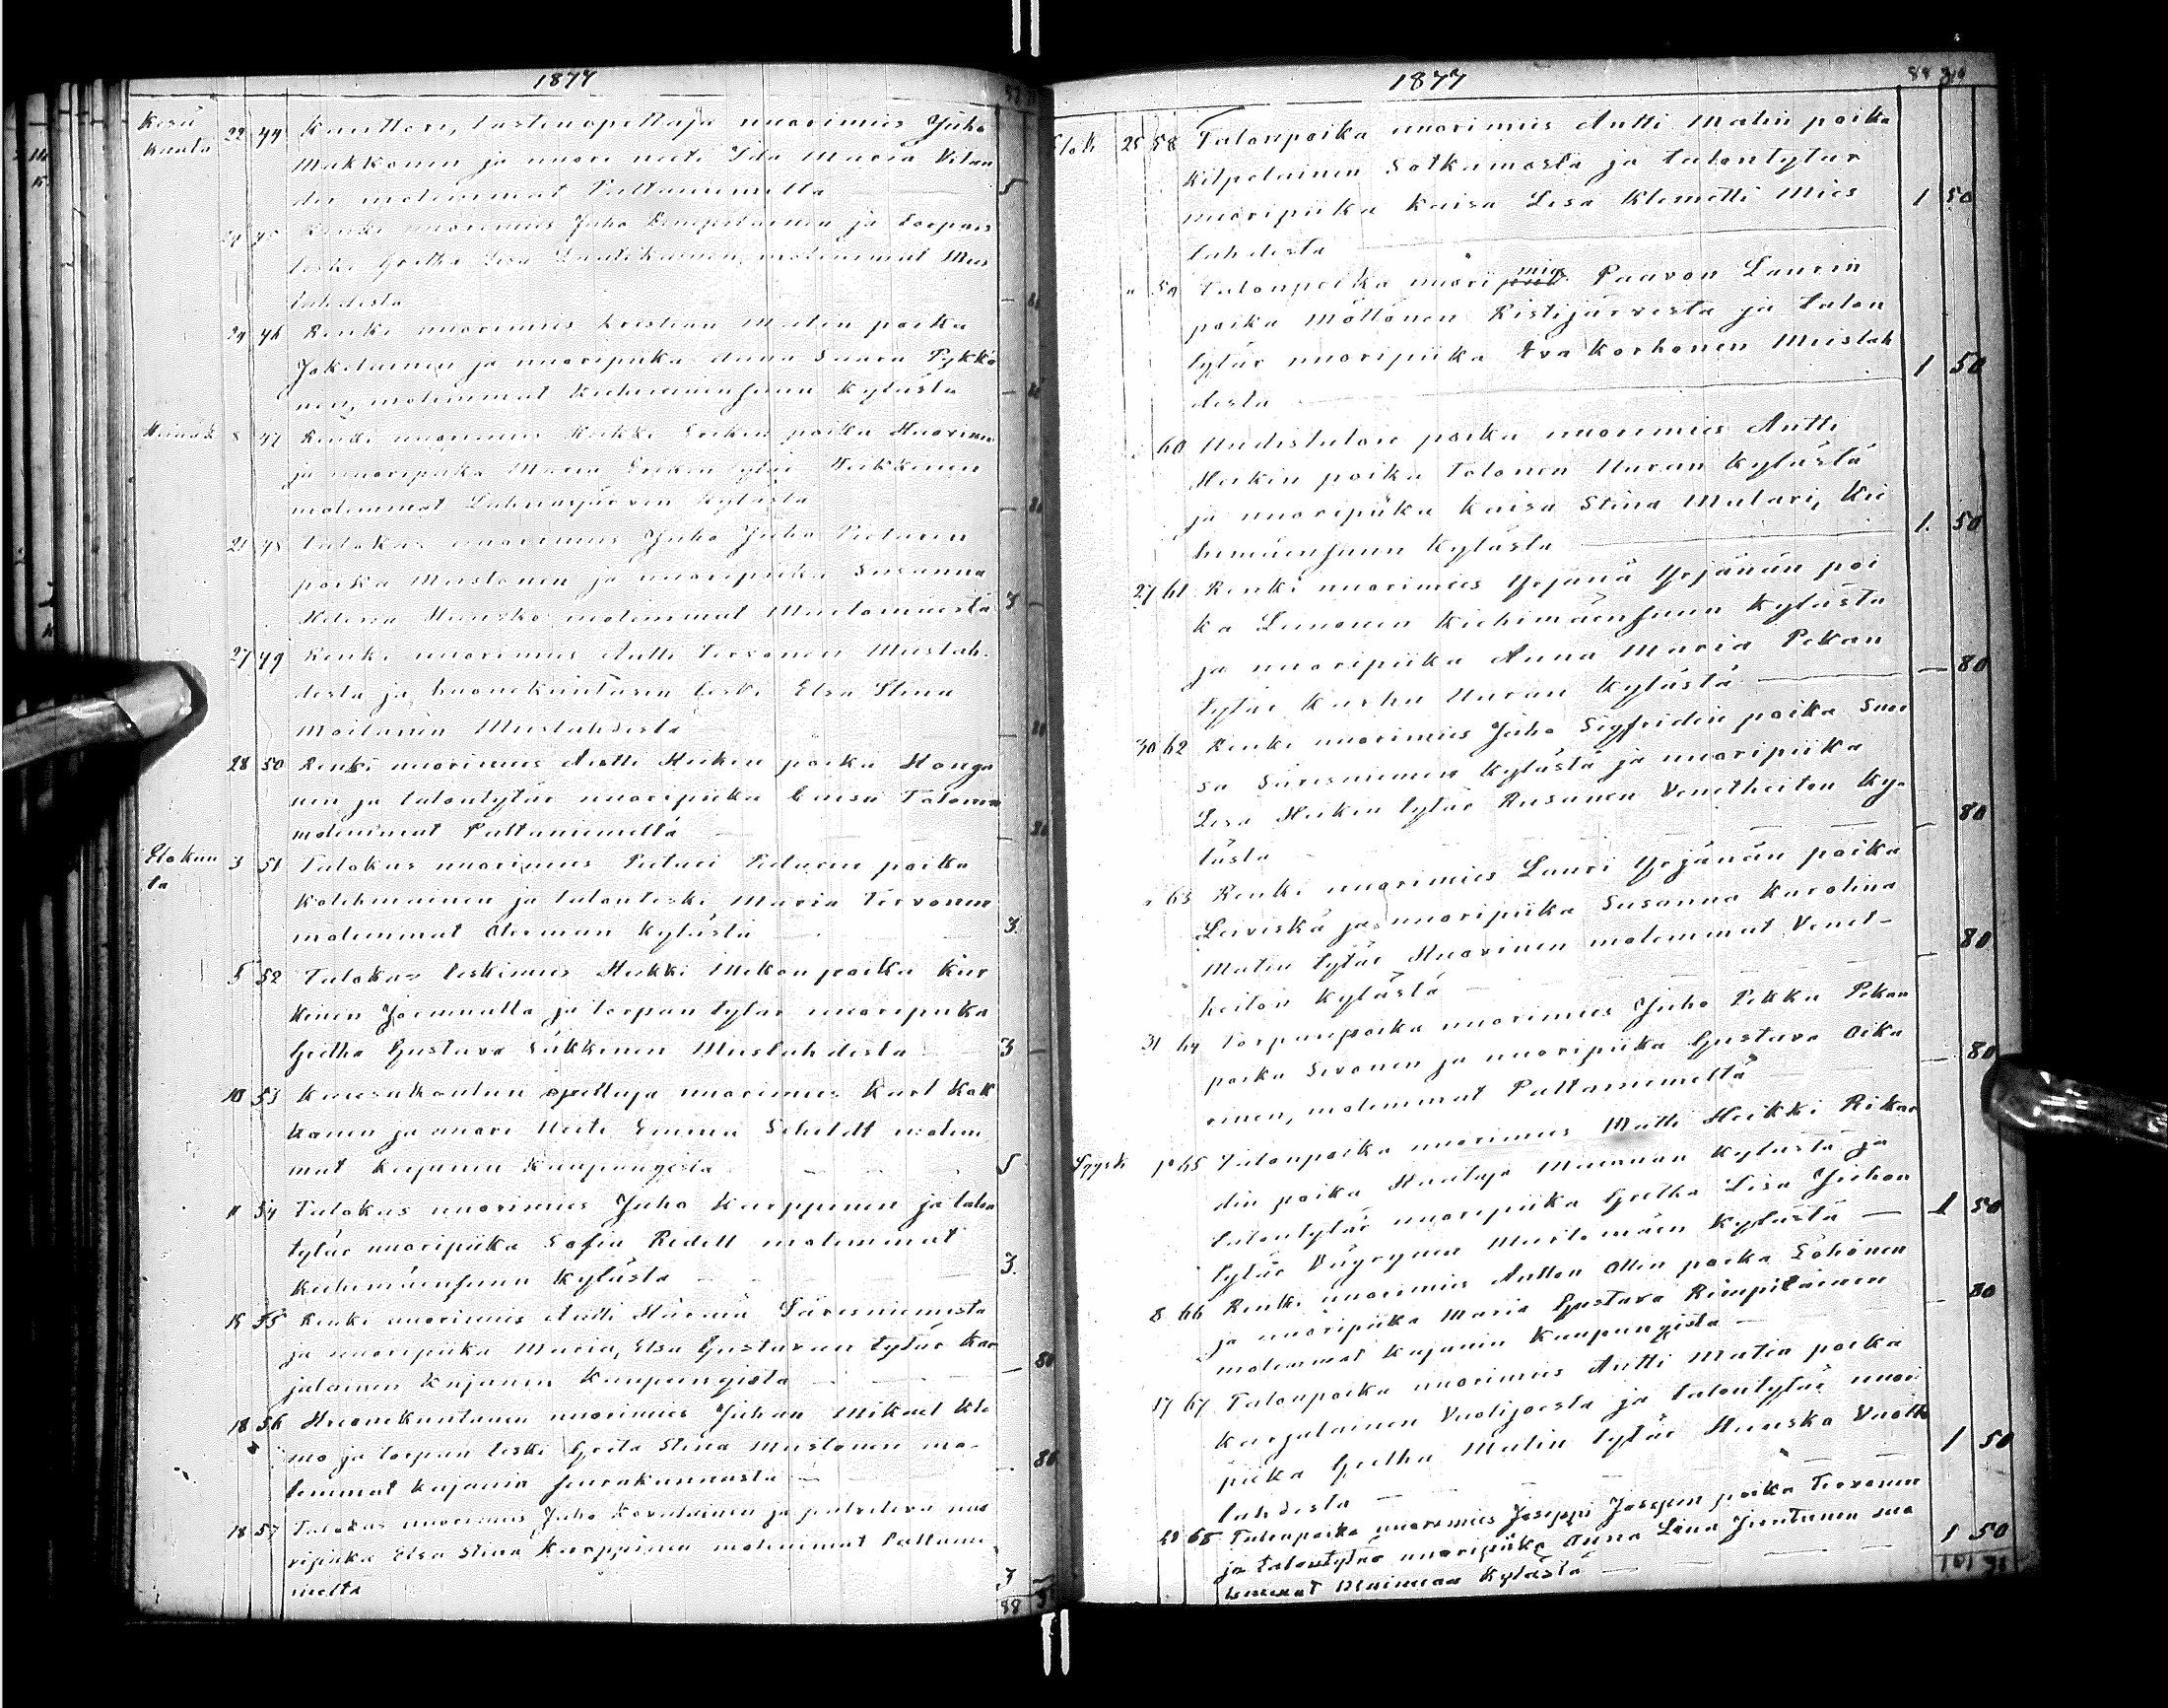 1877
Kesä 22 44 Kanttori, lastenopettaja nuorimies Juho
kuuta Mukkonen ja nuori neiti Ida Maria
molemmat Paltaniemeltä 5
45 Renki nuorimies Juho Rimpilainen ja torpan
leski Gretha Lisa molemmat Mies
lahdesta
29 46 Renki nuorimies Kristian Matin poika
Jokelainen ja nuoripiika Anna Saara Pykkö
nen, molemmat Kiehimäensuun kylästä
Heinäk 8 47 Renki nuorimies Heikki Erikin poika Huovinen
ja nuoripiika Maria Erikin tytär Heikkinen
molemmat Lahnasjärven kylästä
21 48 Talokas nuorimies Juho Juho Pieturin
poika Mustonen ja nuoripiika Susanna
Helena Hunsko molemmat 3 —
27 49 Renki nuorimies Antti Tervonen Mieslah-
desta ja huonekuntasen leski Elsa Stina
Moilanen Mieslahdesta — 80
28 50 Renki nuorimies Antti Heikin poika Honga
nen ja talontytär nuoripiika Caisa Tolonen
molemmat Paltaniemeltä — 80
Elokuu 3 51 Talokas nuorimies Pieturi Pieturin poika
ta Kolehmainen ja talonleski Maria Tervonen
molemmat kylästä 3.
5 52 Talokas leskimies Heikki Mikon poika Kur
kinen ja torpan tytär nuoripiika
Gretha Gustava Sükkinen Mieslahdesta 3 —
10 53 Kansakoulun opettaja nuorimies Karl Kok
konen ja nuori Neiti Emma Schildt molem
mat Kajanin Kaupungista 5
11 54 Talokas nuorimies Juho Karppinen ja talon
tytär nuoripiika Sofia Redell molemmat
Kiehimäensuun kylästä 3.
15 55 Renki nuorimies Antti Härmä Säresniemestä
ja nuoripiika Maria, Elsa Gustavan tytär Kar
jalainen Kajanin Kaupungista — 80
18 56 Huonekuntanen nuorimies Juhan Mikael Kle
mo ja torpan leski Greta Stina Mustonen mo-
lemmat Kajanin seurakunnasta — 80
18 57 Talokas nuorimies Juho Kovalainen ja palveleva nuo
ripiika Elsa Stina Karppinen molemmat Paltanie
meltä 3 —
88
1877
Elok 25 58 Talonpoika nuorimies Antti Matin poika
Kilpeläinen Sotkamosta ja talontytär
nuoripiika Kaisa Lisa Klemetti Mies 1 50
lahdesta
" 59 Talonpoika nuori mies Paavon Laurin
poika Möttönen Ristijärvestä ja talon
tytär nuoripiika Eva Korhonen Mieslah 1 50
desta
60 Uudistalon poika nuorimies Antti
Heikin poika Tolonen Uuran kylästä
ja nuoripiika Kaisa Stina Mulari, Kie 1. 50
himäensuun kylästä
27 61 Renki nuorimies Yrjänä Yrjänän poi
ka Leinonen Kiehimäensuun kylästä
ja nuoripiika Anna Maria Pekan — 80
tytär Karhu Uuran kylästä
30 62 Renki nuorimies Juho Sigfridin poika Suor
sa Säresniemen kylästä ja nuoripiika
Lisa Heikin tytär Rusanen Venetheiton Ky- — 80
lästä
" 63 Renki nuorimies Lauri Yrjänän poika
Leiviskä ja nuoripiika Susanna Karolina
Matin tytär Huovinen molemmat Venet- — 80
heiton kylästä
31 64 Torpanpoika nuorimies Juho Pekka Pekan
poika Sivonen ja nuoripiika Gustava Oika — 80
rinen, molemmat Paltaniemeltä
Syysk 1 65 Talonpoika nuorimies Matti Heikki Rikar
din poika Huotaja kylästä ja
talontytär nuoripiika Gretha Lisa Juhon 1 50
tytär Väyrynen Mustomäen kylästä —
8 66 Renki nuorimies Antton Ollin poika
ja nuoripiika Maria Gustava Rimpiläinen — 80
molemmat Kajanin Kaupungista —
17 67 Talonpoika nuorimies Antti Matin poika
Karjalainen Vuolijoesta ja talontytär nuori
piika Gretha Matin tytär Hunsko 1 50
lahdesta
68 Talonpoika nuorimies Joseppi Josepin poika Tervonen
ja talontytär nuoripiika Anna Liina Juntunen mo 1 50
lemmat kylästä —
101